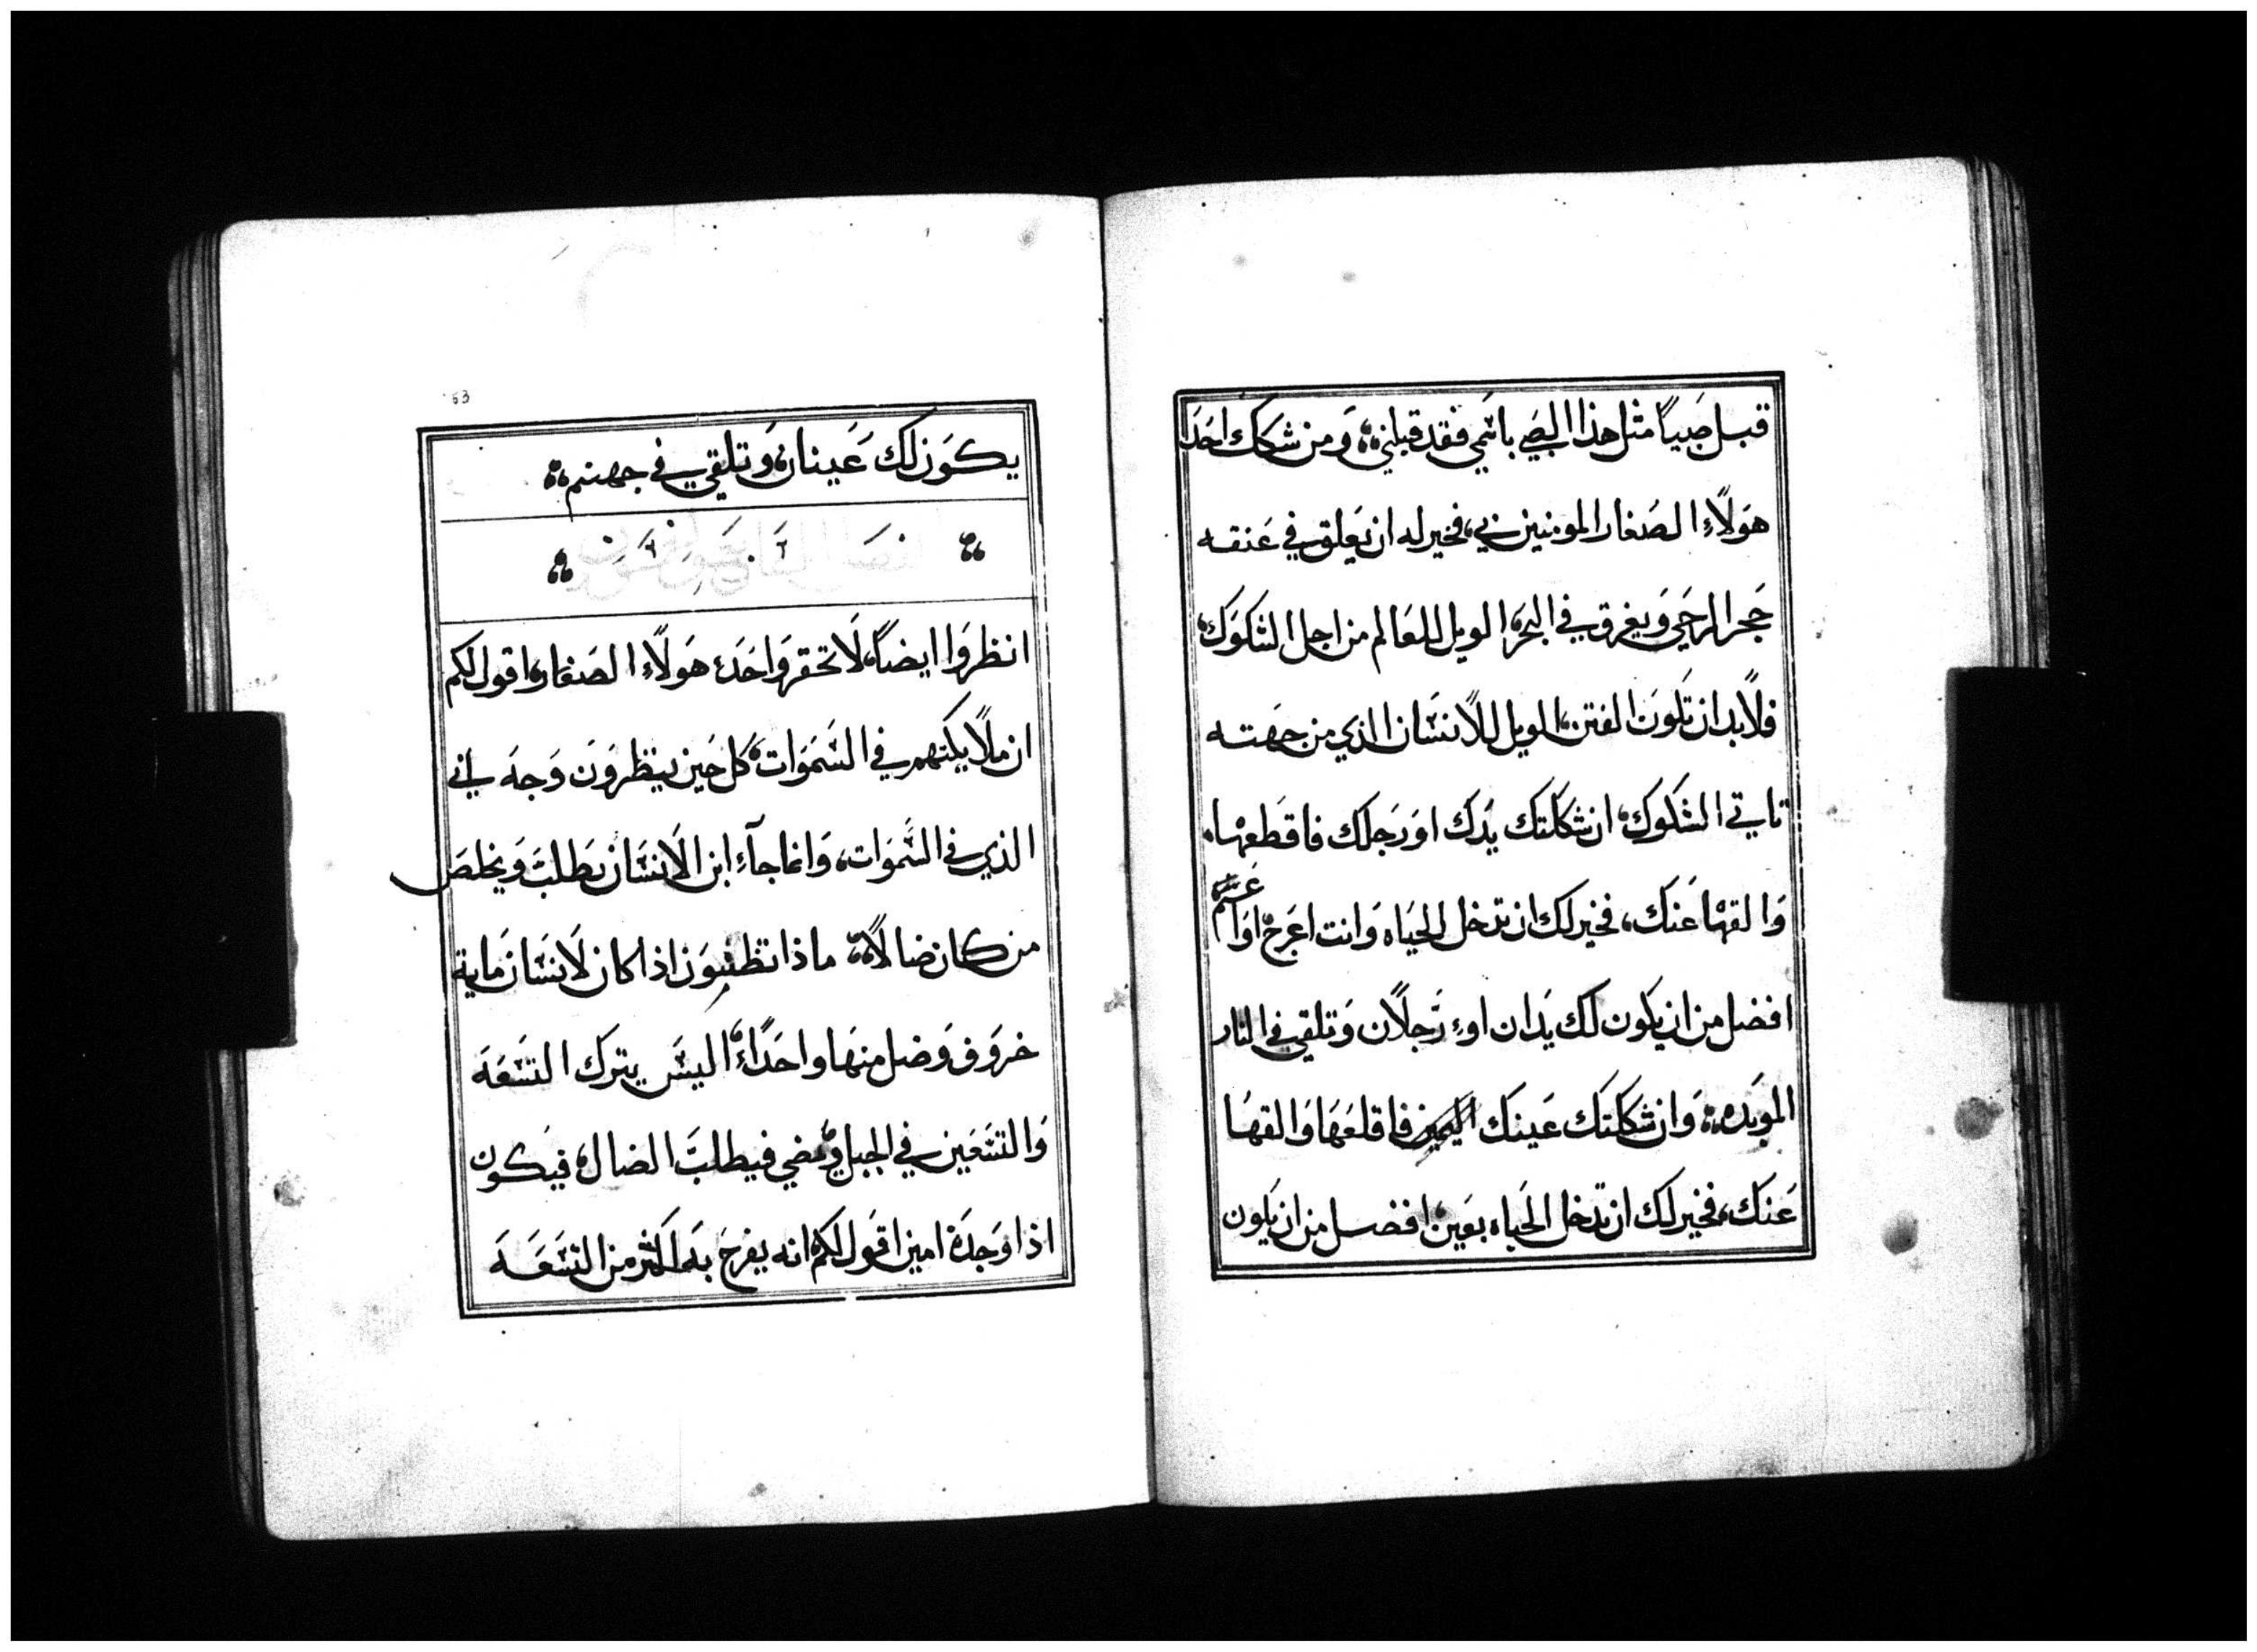 قبل صَبياً مثل هذا الصبي باسمي فقد قبلني؞ وَمن شكك احَدَ
هَولآءِ الصَغار المومنين بي، فخير له ان يَعلق في عَنقه
حَجر الرحَي وَيغرق في البحَر، الويل للعَالم من اجل الشكوَك،
فلاَبد ان تكوَن الفتن، الويل للاَنسَان الذي من جهَته
تاتي الشكوك، ان شككتك يدَك اوَ رَجلك فاقطعهْا،
وَالقهْا عَنكَ، فخير لك ان تدخل الحَيَاه وَانت اعَرَج اوَ اعَسَم
افضل من ان يكون لك يدَان اوء رَجلاَن وَتلقي في النار
الموَبدَه؞ وَان شككتَك عَينك اليمين فاقلعَهَا وَالقهَا
عَنكَ، فخير لك ان تدخل الحَياه بعَين، افضل من ان يكون
63
يكوَن لك عَينان، وَتلقي في جهنم؞
انظروَا ايضاً، لاَ تحقروَا احَدَ، هَولآءِ الصَغار، اقول لكم
ان ملاَيكتهم في السَمَوَات، كل حَين ينظروَن وَجه ابي
الذي في السَموَات، وَانما جآء ابن الاَنسَان يطلبَ وَيخلصَ
من كان ضالاً؞ ماذا تظنوَن اذا كان لاَنسَان مَاية
خروَف وَضل منهَا واحَدًا، اليسَ يترك التسَعَهَ
وَالتسَعَين في الجبل، وَيمضي فيطلبَ الضال، فيَكون
اذا وَجدَه امين اقوَل لكم انه يفرحَ به اكثر من التسَعَهَ